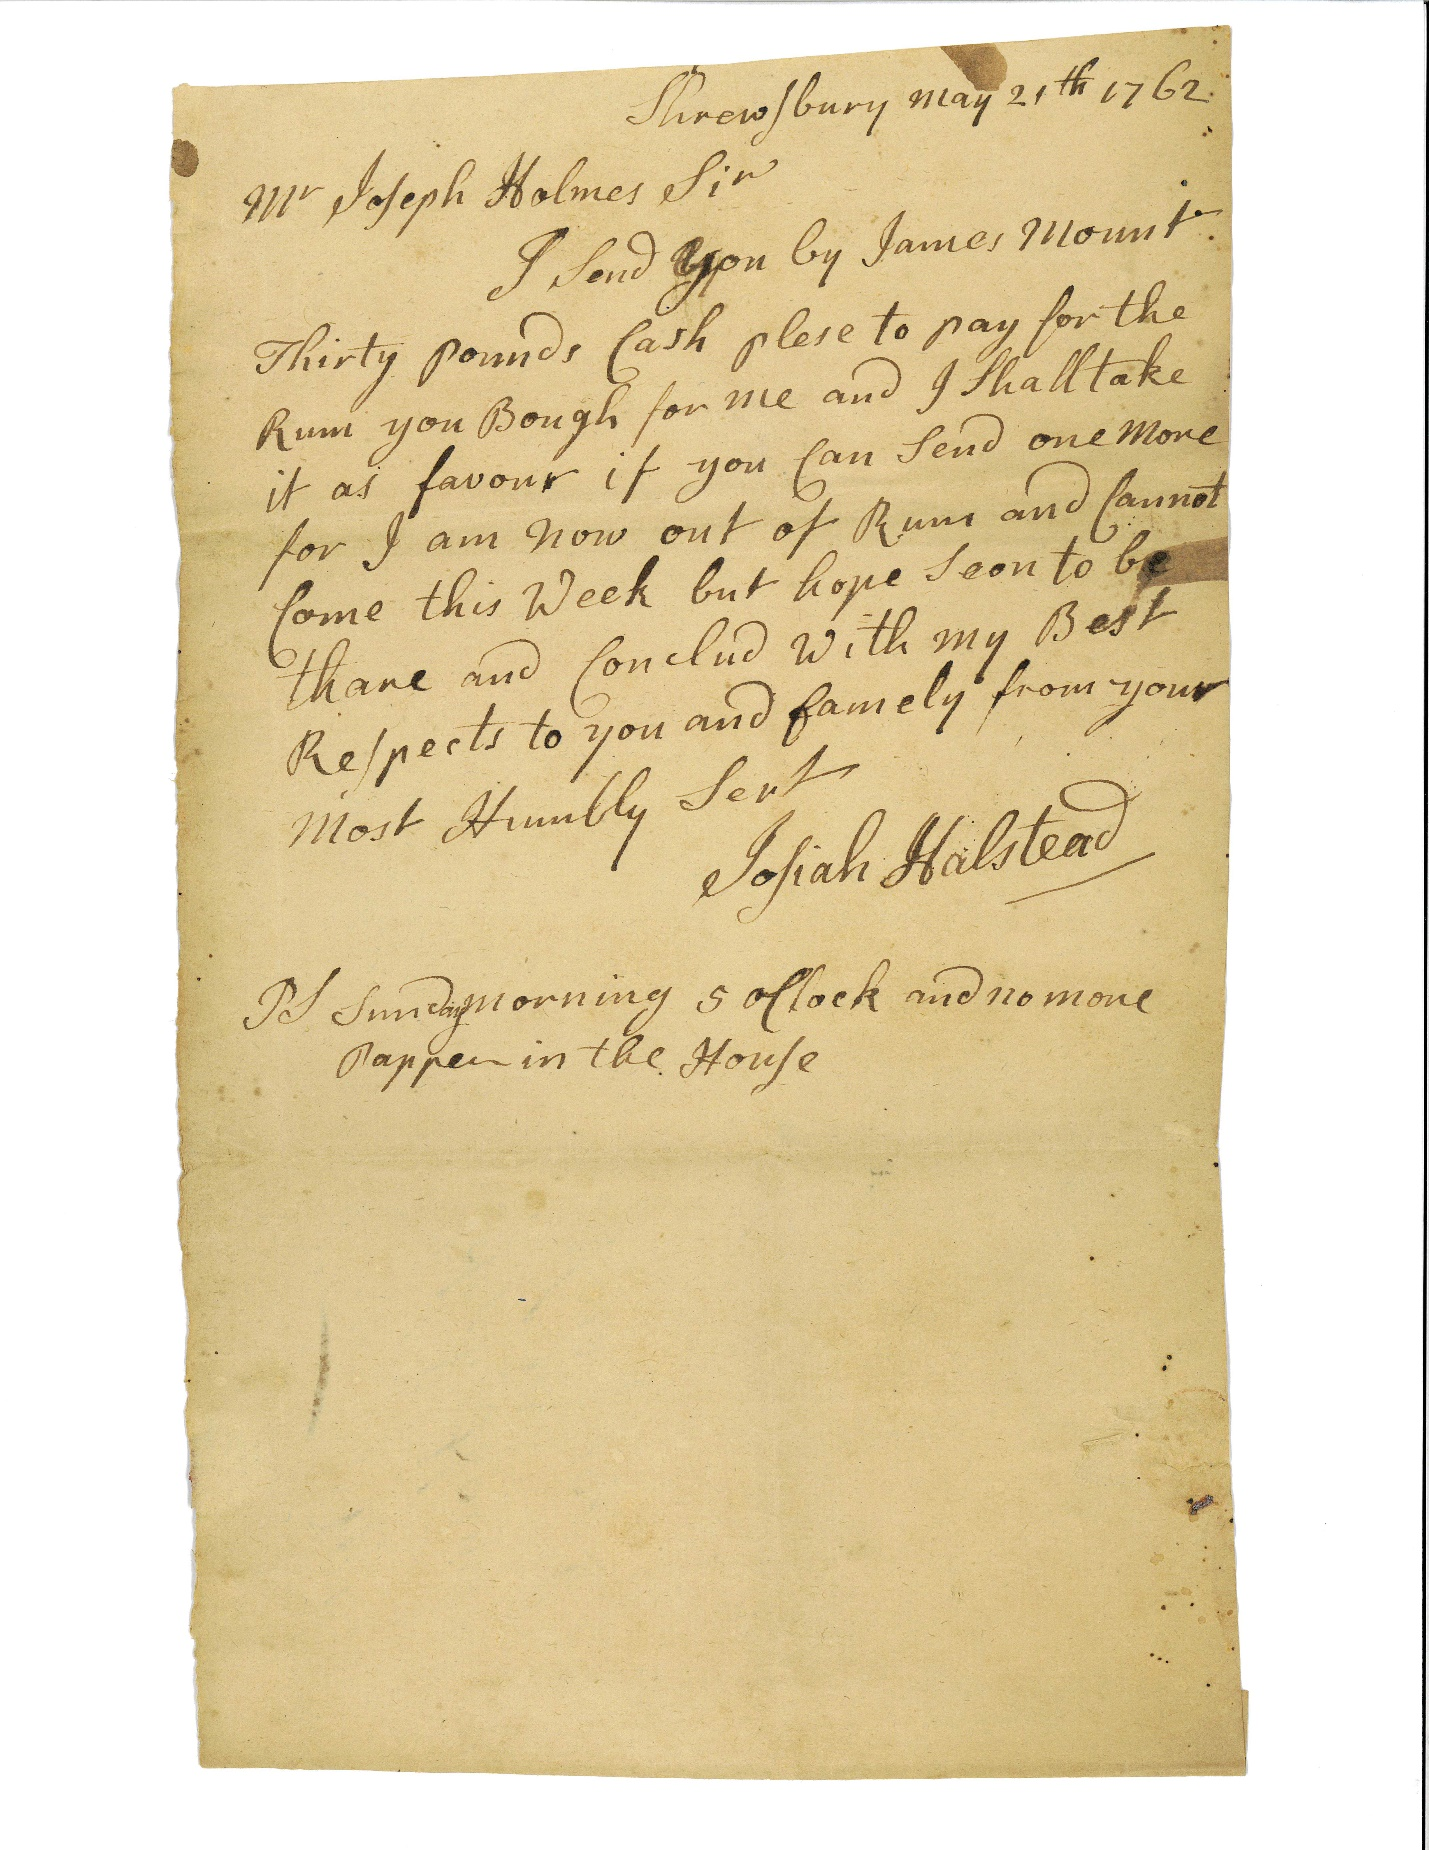 Shrewsbury may 21th 1762
Mr Joseph Holmes Sir
I Send you by James Mount
Thirty pounds Cash plese to pay for the
Rum you Bough for me and I Shall take
it as favour if you Can Send one More
for I am now out of Rum and Cannot
Come this Week but hope Seon to be
thare and Conclud With my Best
Respects to you and famely from your
Most Humbly Sert
Josiah Halstead
PS Sunday morning 5 oClock and no more
Papper in the House